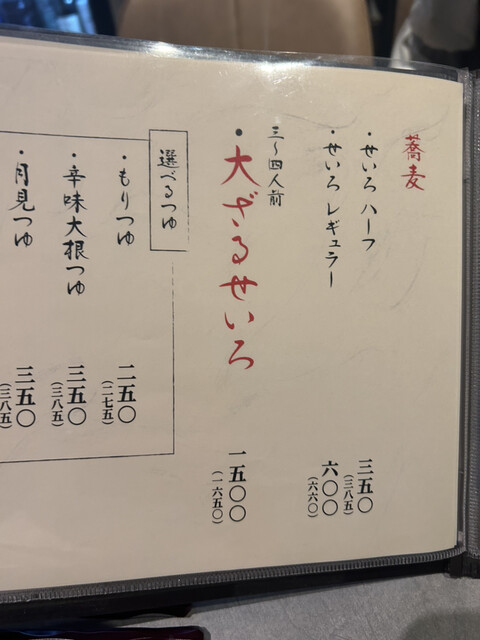 蕎麦
・せいろ ハーフ 三五〇
(三八五)
・せいろ レギュラー 六〇〇
(六六〇)
三〜四人前
・大ざるせいろ 一五〇〇
(一六五〇)
選べるつゆ
・もりつゆ 二五〇
(二七五)
・辛味大根つゆ 三五〇
(三八五)
・月見つゆ 三五〇
(三八五)